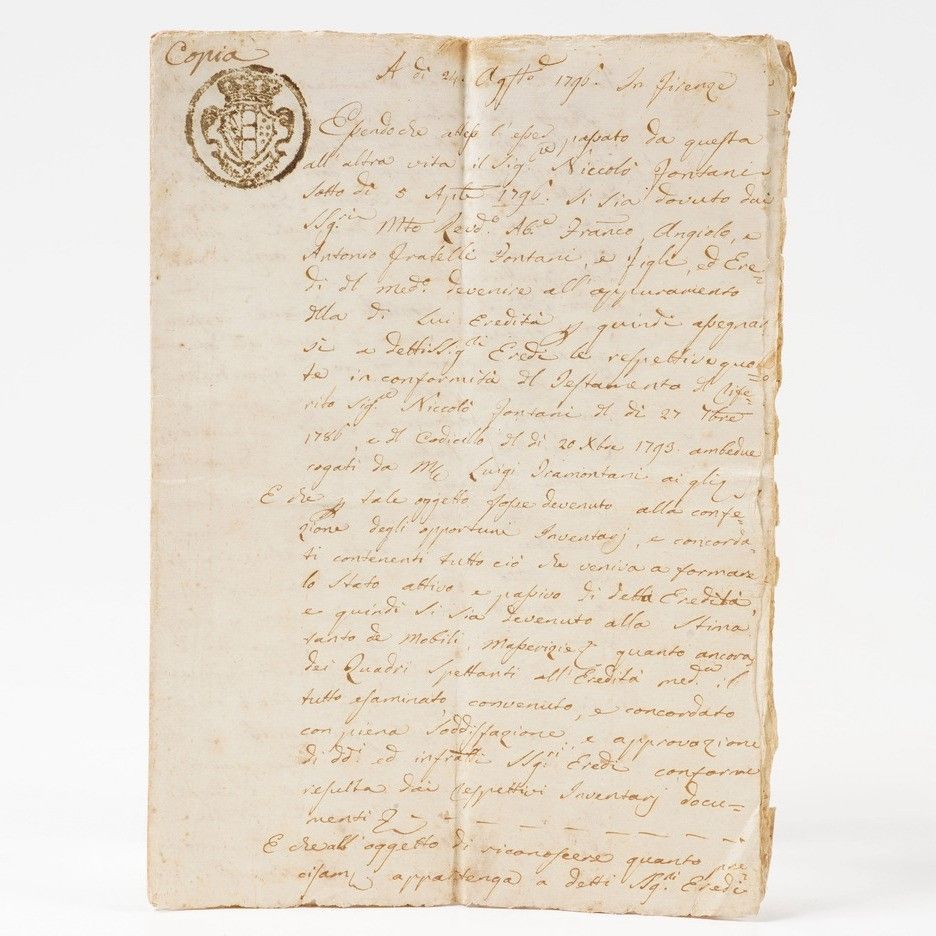 Copia
A di 24. Agsto 1796. In Firenze
Essendo che atteso l'esser passato da questa
all'altra vita il Sigre Niccolò Fontani
sotto dì 5 Aple 1796. si sia dovuto dai
SSgri Mto Revd. Abe Franco, Angiolo, e
Antonio Fratelli Fontani, e Figli, ed Ere-
di dl medo. devenire all'appuramento
dlla di Lui Eredità, e quindi assegnar
si a detti SSigri Eredi le respettive quo-
te in conformità dl Testamento dl rife-
rito Sigre Niccolò Fontani dl dì 27 7bre
1786, e dl Codicilo dl dì 20 Xbre 1793. ambedue
rogati da Mr Luigi Tramontani
E che p tale oggetto fosse devenuto alla confe-
zione degli opportuni Inventarj, e concorda-
ti contenenti tutto ciò che veniva a formare
lo Stato attivo e passivo di detta Eredità,
e quindi si sia devenuto alla Stima
tanto de Mobili, Masserizie quanto ancora
dei Quadri Spettanti all'Eredità meda. il
tutto esaminato, convenuto, e concordato
con piena soddisfazione, e approvazione
di ddi ed infratti SSgri Eredi conforme
resulta dai respettivi Inventarj docu-
menti
E che all'oggetto di riconoscere quanto pre-
cisam appartenga a detti SSgri Eredi